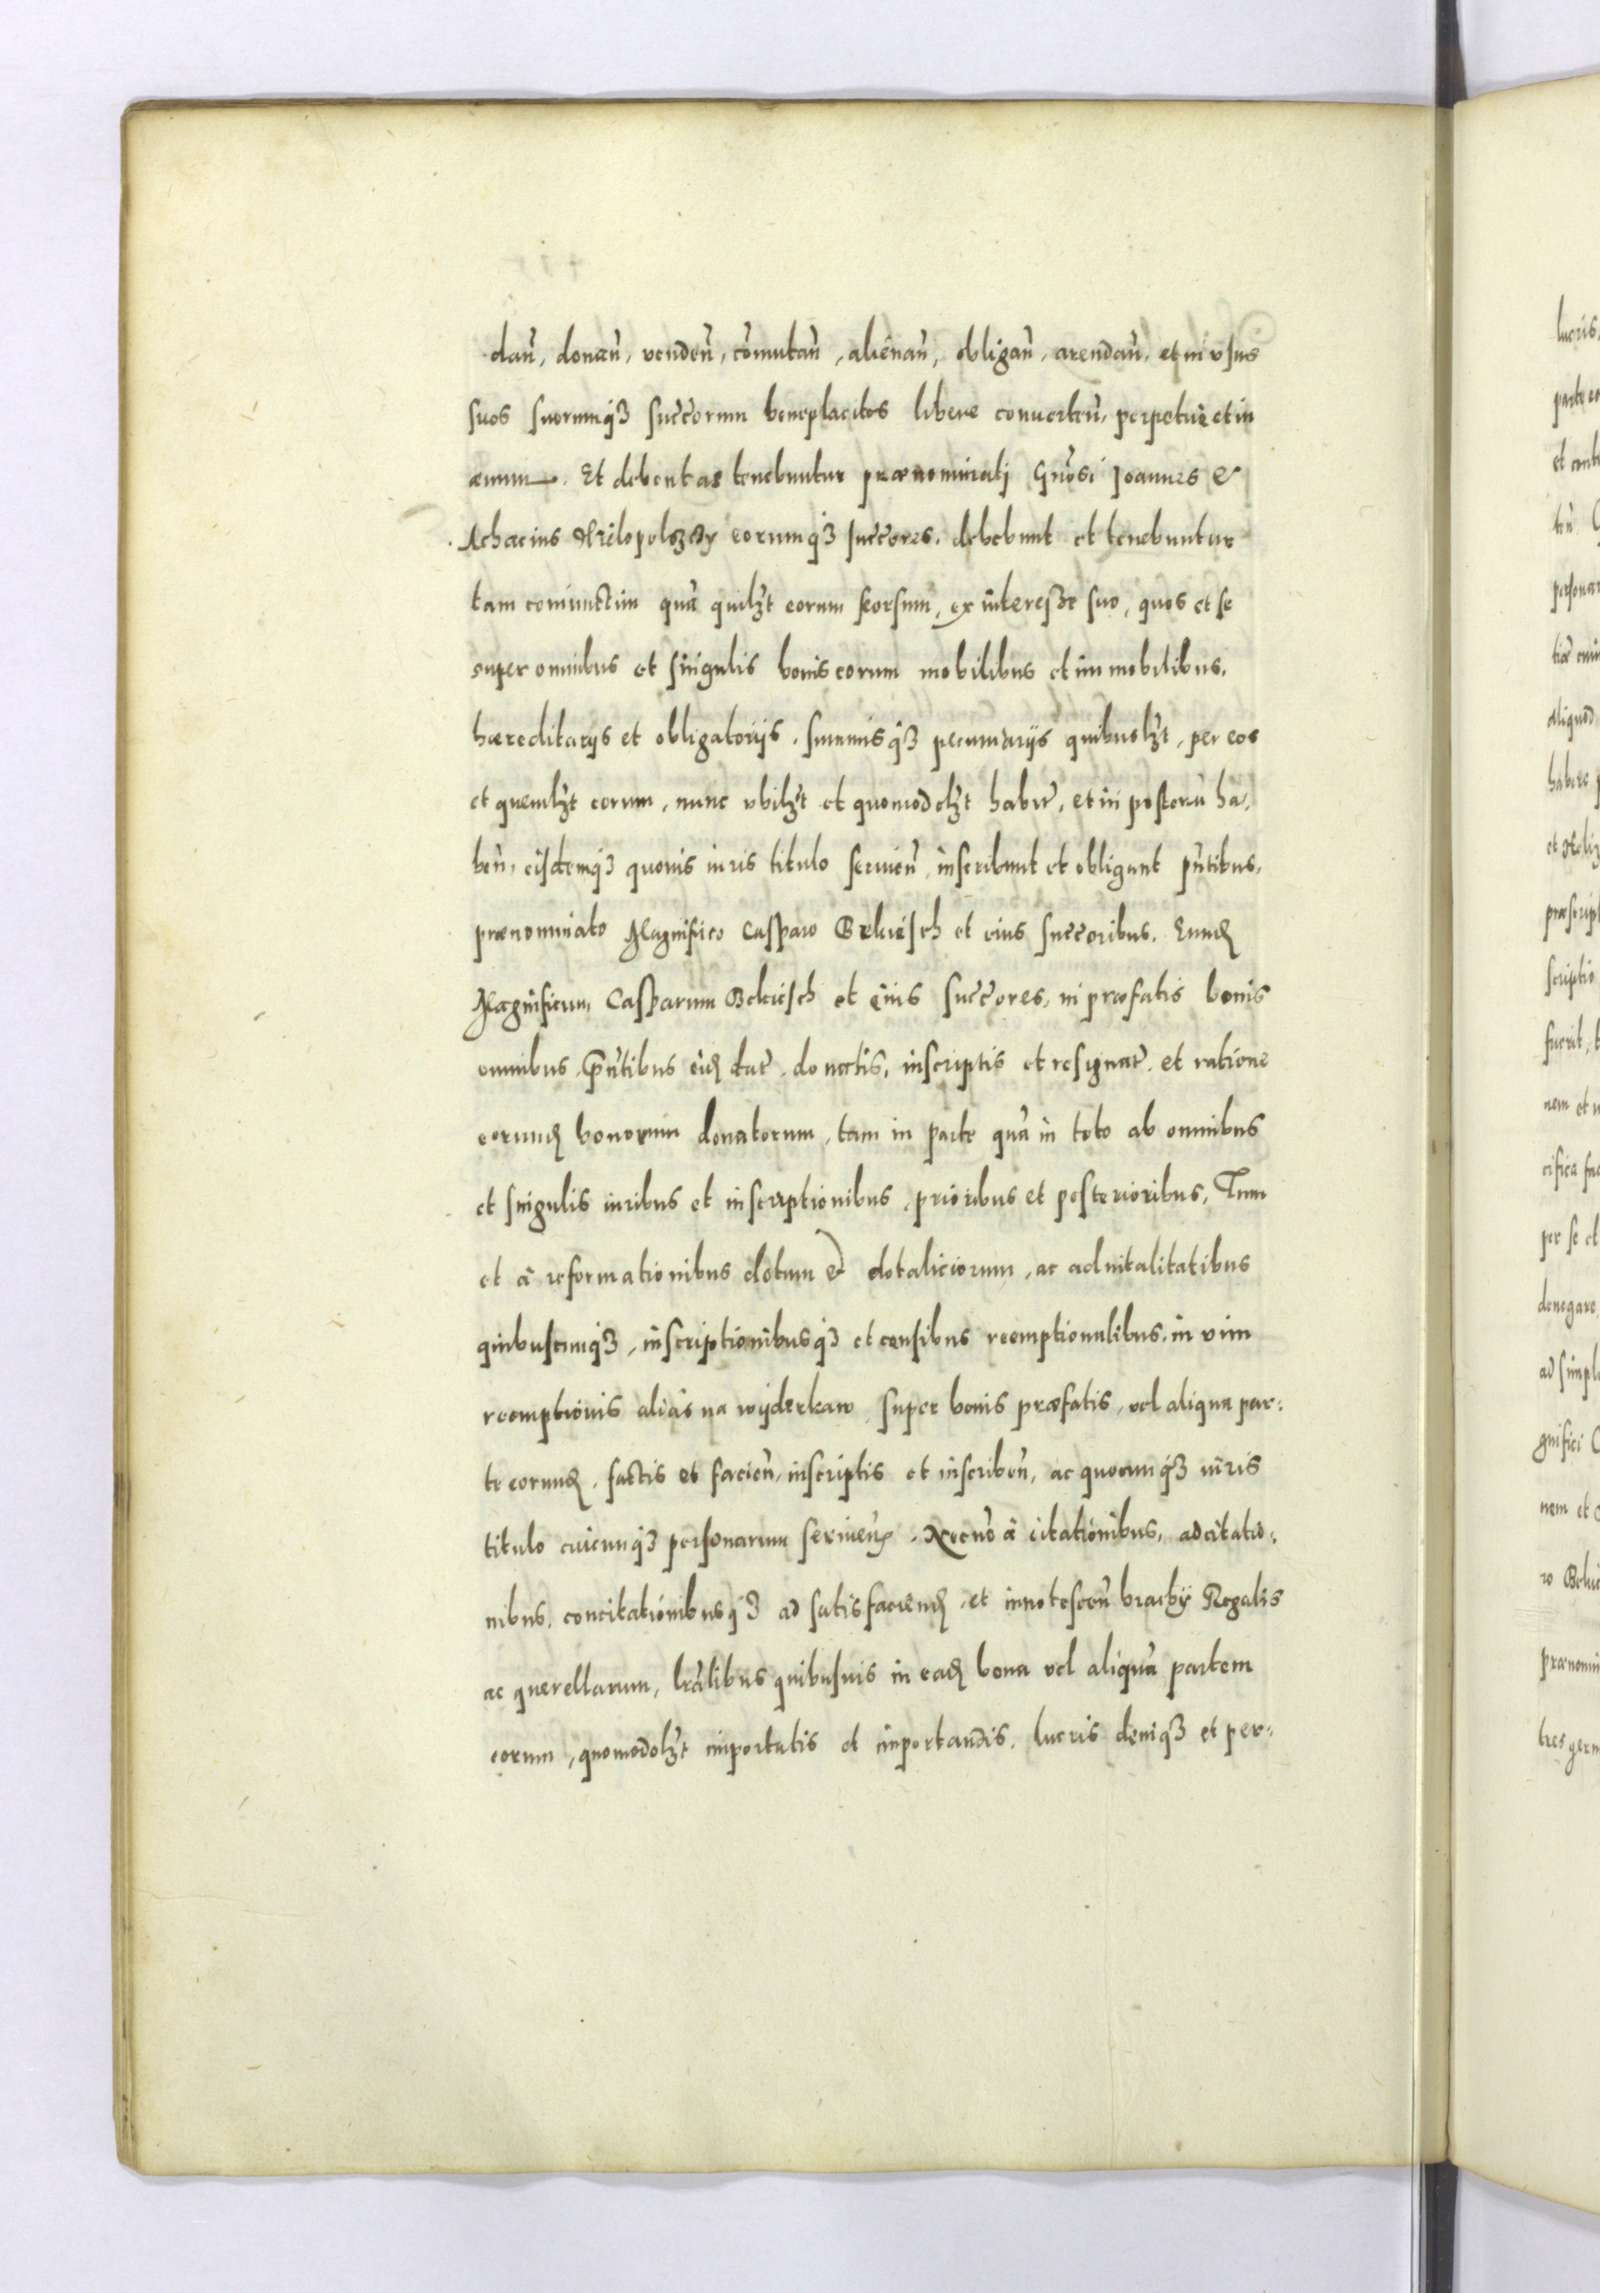 dan̄, donan̄, venden̄, com̄utan̄, alienan̄, obligan̄, arendan̄, et in vsus
suos suorumqꝫ succorum beneplacitos libere conuerten̄, perpetuè et in
æuum. Et debent ac tenebuntur prænominatj Gn̄osi Joannes &
Achacius eorumqꝫ succores, debebunt et tenebuntur
tam coniunctim quā quilꝫt eorum seorsum, ex interesse suo, quos et se
super omnibus et singulis bonis eorum mobilibus et immobilibus,
hæreditarijs et obligatorijs, summisqꝫ pecuniarijs quibuslꝫt, per eos
et quemlꝫt eorum, nunc vbilꝫt et quomodolꝫt habit̄, et in posterū ha,
ben̄, eisdemqꝫ quouis iuris titulo seruien̄, inscribunt et obligant pn̄tibus,
prænominato Magnifico Casparo Bekiesch et eius succoribus. Eund̄
Magnificum Casparum Bekiesch et eius succores, in præfatis bonis
omnibus, pn̄tibus eid̄ dat̄, donatis, inscriptis et resignat̄, et ratione
eorund̄ bonorum donatorum, tam in parte quā in toto ab omnibus
et singulis iuribus et inscriptionibus, prioribus et posterioribus, Tum
et à reformationibus dotum & dotaliciorum, ac aduitalitatibus
quibuscumqꝫ, inscriptionibusqꝫ et censibus reemptionalibus, in vim
reemptionis aliàs na wyderkaw super bonis præfatis, vel aliqua par:
te eorund̄, factis et facien̄, inscriptis et inscriben̄, ac quocumqꝫ iuris
titulo cuicumqꝫ personarum seruien̄, Necnō à citationibus, adcitatio:
nibus, concitationibusqꝫ ad satisfaciend̄, et innotescen̄ brachij Regalis
ac querellarum, lrālibus quibusuis in ead̄ bona vel aliquā partem
eorum, quomodolꝫt importatis et importandis, lucris deniqꝫ et per: